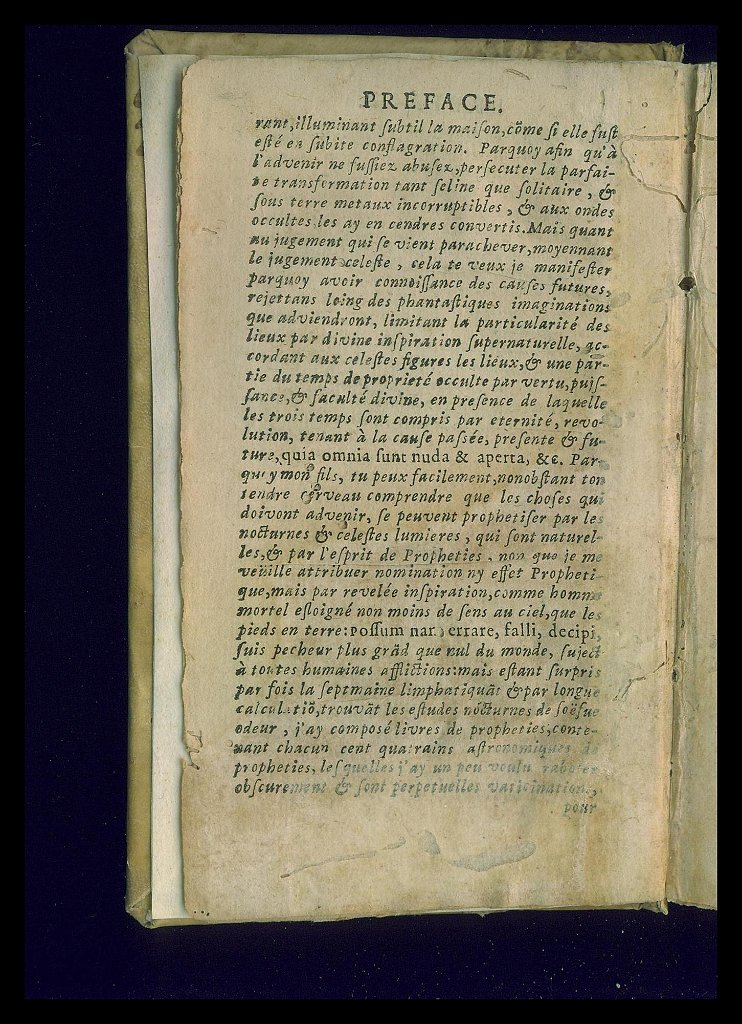 PREFACE.
rant,illuminant ſubtil la maiſon,cõme ſi elle fuſt
eſté en ſubite conflagration. Parquoy afin qu'à
l'advenir ne fuſſiez abuſez,perſecuter la parfai-
te transformation tant ſeline que ſolitaire, &
ſous terre metaux incorruptibles, & aux ondes
occultes les ay en cendres convertis.Mais quant
au jugement qui ſe vient parachever,moyennant
le jugement celeſte, cela te veux je manifeſter
parquoy avoir connoiſſance des cauſes futures,
rejettans loing des phantaſtiques imaginations
que adviendront, limitant la particularité des
lieux par divine inſpiration ſupernaturelle, ac-
cordant aux celeſtes figures les lieux,& une par-
tie du temps de proprieté occulte par vertu,puiſ-
ſance,& faculté divine, en preſence de laquelle
les trois temps ſont compris par eternité, revo-
lution, tenant à la cauſe paſsée, preſente & fu-
ture,quia omnia ſunt nuda & aperta, &c. Par-
quoy mon fils, tu peux facilement,nonobſtant ton
tendre cerveau comprendre que les choſes qui
doivont advenir, ſe peuvent prophetiſer par les
nocturnes & celeſtes lumieres, qui ſont naturel-
les,& par l'eſprit de Propheties, non que je me
veüille attribuer nomination ny effet Propheti-
que,mais par revelée inſpiration,comme homme
mortel eſloigné non moins de ſens au ciel,que les
pieds en terre:Poſſum nan errare, falli, decipi,
ſuis pecheur plus grãd que nul du monde, ſuject
à toutes humaines afflictions:mais eſtant ſurpris
par fois la ſeptmaine limphatiquãt & par longue
calculatiõ,trouvãt les eſtudes nocturnes de ſoëſve
odeur, j'ay composé livres de propheties,conte-
nant chacun cent quatrains aſtronomiques de
propheties, leſquelles j'ay un peu voulu raboter
obſcurement & ſont perpetuelles vaticinations,
pour